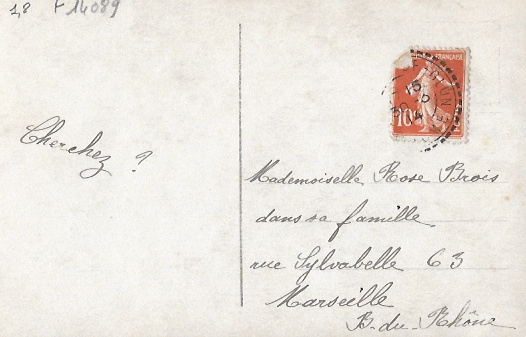 1,8 F 14089
FRANÇAISE
10
Cherchez ?
Mademoiselle Rose Brois
dans sa famille
rue Sylvabelle 63
Marseille
B-du-Rhône